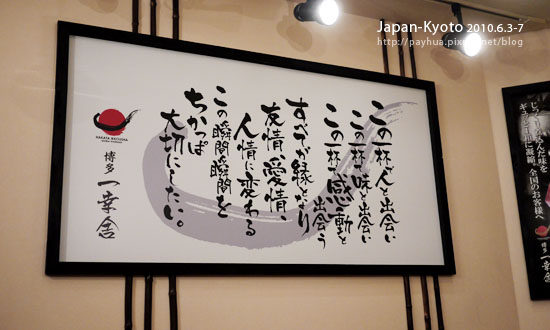 Japan-Kyoto 2010.6.3-7
この一杯で人と出会い
この一杯で味と出会い
この一杯で感動と出会う
すべてが縁となり
友情、愛情、
人情に変わる
この瞬間瞬間を
ちかっぱ
大切にしたい。
博多 一幸舎
じっくり煮込んだ味を
ギュッと一杯に凝縮。
全国のお客様へ